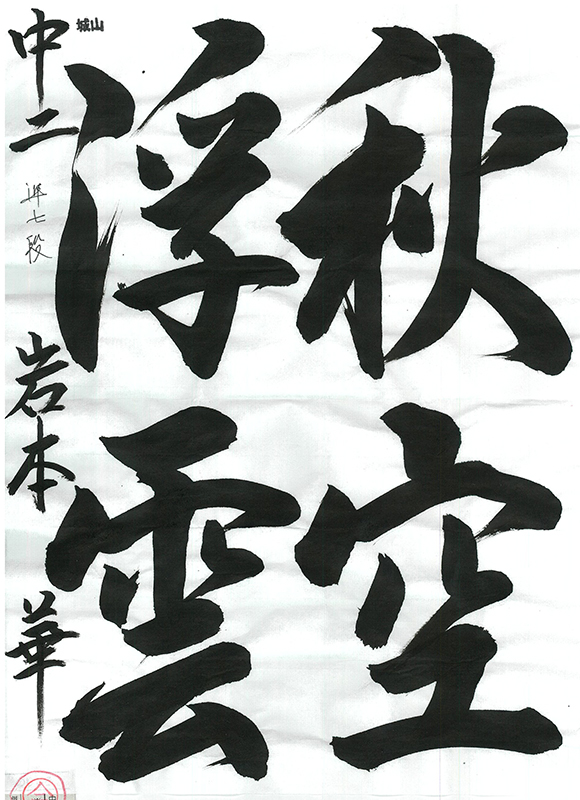 秋空
浮雲
中二 準七段 岩本 華
城山